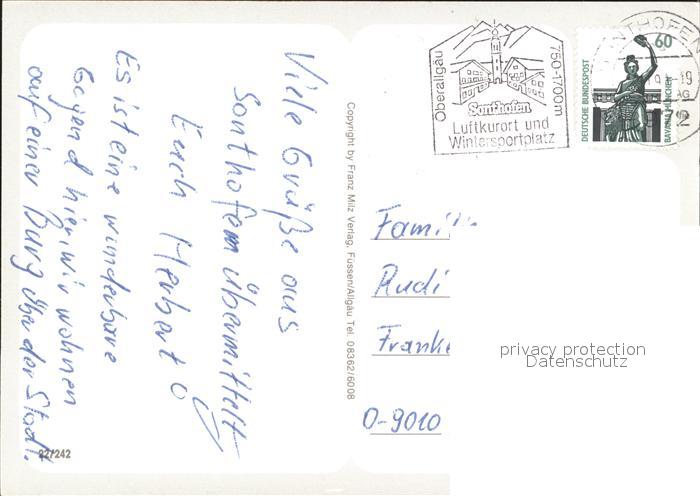 Viele Grüße aus
Sonthofen übermittelt
Euch Herbert
Es ist eine wunderbare
Gegend hier, wir wohnen
auf einer Burg über der Stadt.
27/242
Copyright by Franz Milz Verlag, Füssen/Allgäu Tel. 08362/6008
Oberallgäu
750-1700m
Sonthofen
Luftkurort und
Wintersportplatz
SONTHOFEN
-19
60
DEUTSCHE BUNDESPOST
BAVARIA MÜNCHEN
Fami
Rudi
Franke
O-9010
privacy protection
Datenschutz